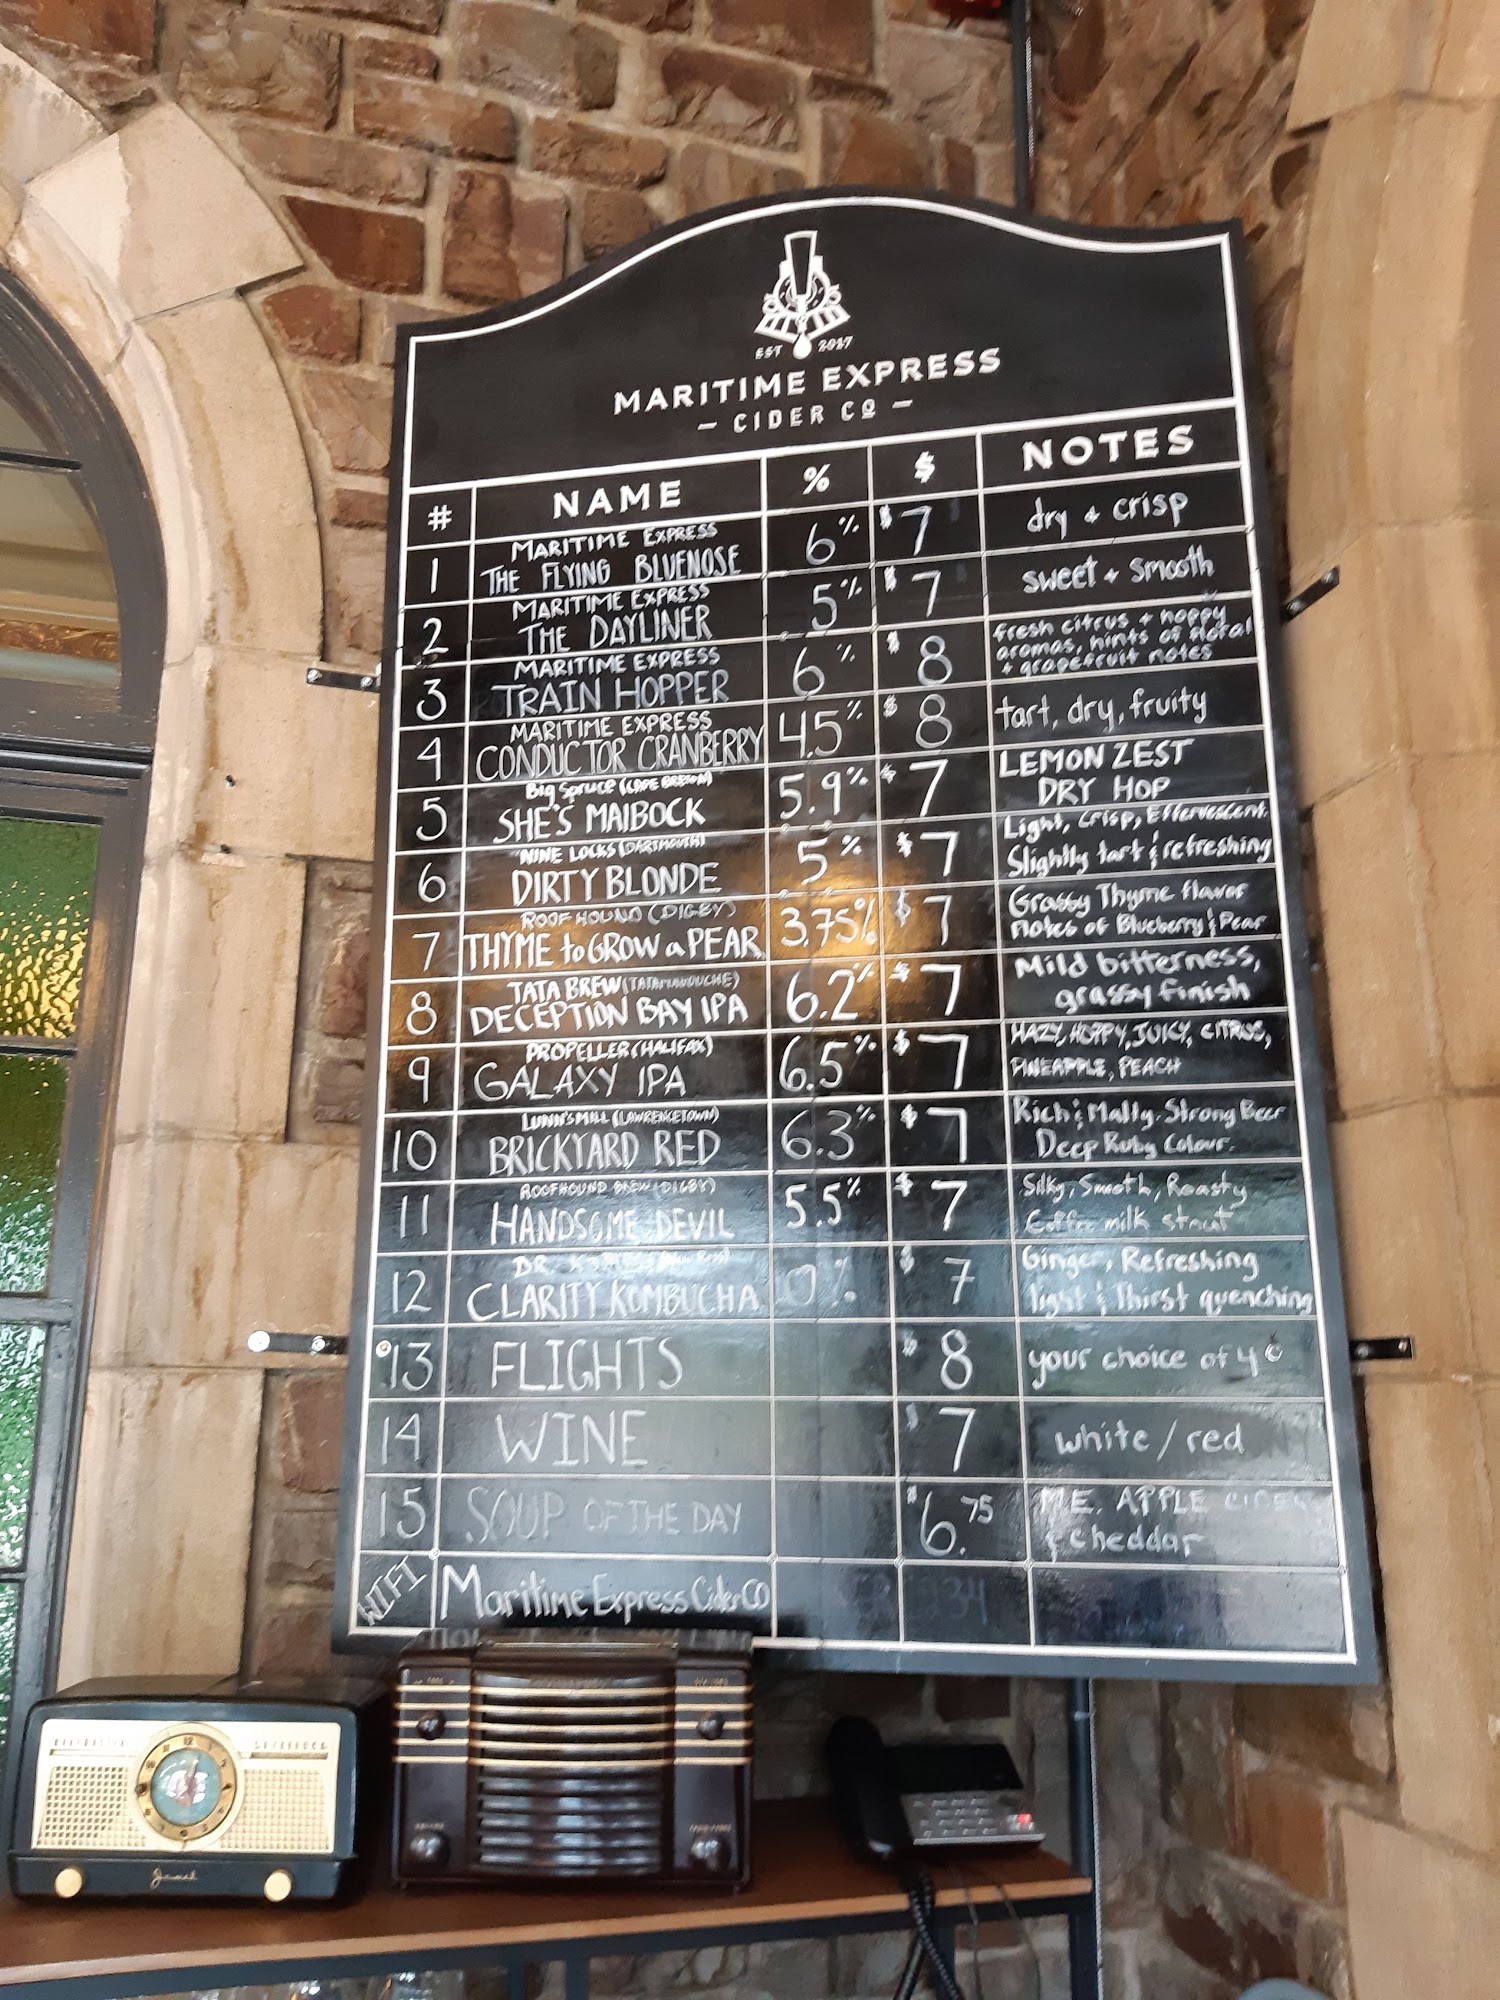 EST 2017
MARITIME EXPRESS
- CIDER CO -
# NAME % $ NOTES
MARITIME EXPRESS
1 THE FLYING BLUENOSE 6% $7 dry + crisp
MARITIME EXPRESS
2 THE DAYLINER 5% $7 sweet + smooth
MARITIME EXPRESS
3 TRAIN HOPPER 6% $8 fresh citrus + hoppy
aromas, hints of floral
+ grapefruit notes
MARITIME EXPRESS
4 CONDUCTOR CRANBERRY 4.5% $8 tart, dry, fruity
Big Spruce (CAPE BRETON)
5 SHE'S MAIBOCK 5.9% $7 LEMON ZEST
DRY HOP
NINE LOCKS (DARTMOUTH)
6 DIRTY BLONDE 5% $7 Light, Crisp, Effervescent.
Slightly tart & refreshing
ROOF HOUND (DIGBY)
7 THYME to GROW a PEAR 3.75% $7 Grassy Thyme flavor
Notes of Blueberry & Pear
TATA BREW (TATAMAGOUCHE)
8 DECEPTION BAY IPA 6.2% $7 Mild bitterness,
grassy finish
PROPELLER (HALIFAX)
9 GALAXY IPA 6.5% $7 HAZY, HOPPY, JUICY, CITRUS,
PINEAPPLE, PEACH
LUNN'S MILL (LAWRENCETOWN)
10 BRICKYARD RED 6.3% $7 Rich & Malty. Strong Beer
Deep Ruby Colour.
ROOFHOUND BREW (DIGBY)
11 HANDSOME DEVIL 5.5% $7 Silky, Smooth, Roasty
Coffee milk stout
DR.
12 CLARITY KOMBUCHA 0% $7 Ginger, Refreshing
light & Thirst quenching
13 FLIGHTS $8 your choice of 4
14 WINE $7 white / red
15 SOUP OF THE DAY $6.75 M.E. APPLE CIDER
& cheddar
WIFI Maritime Express Cider CO
Jewel